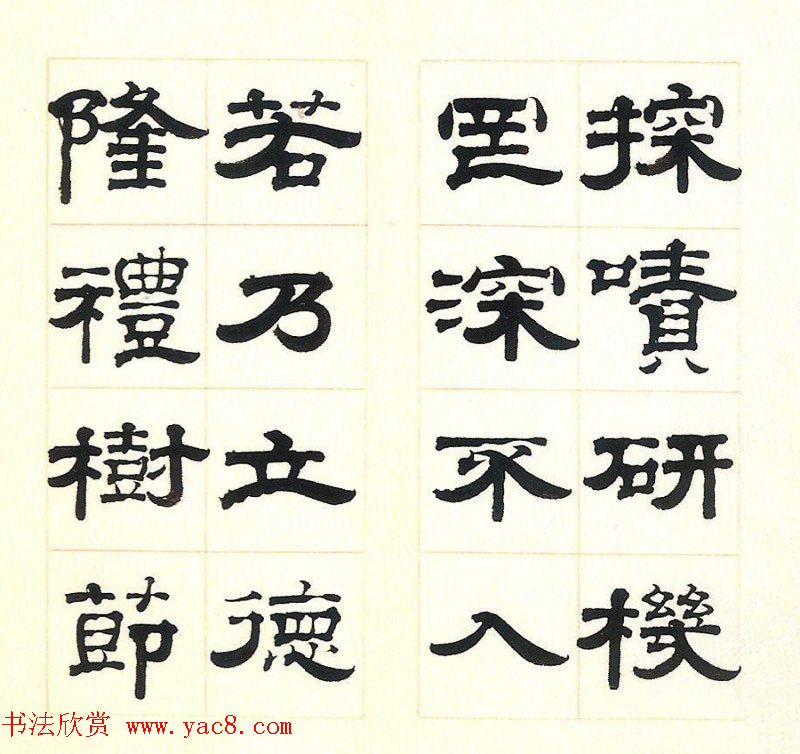 探嘖研機
罔深不入
若乃立德
隆禮樹節
书法欣赏 www.yac8.com